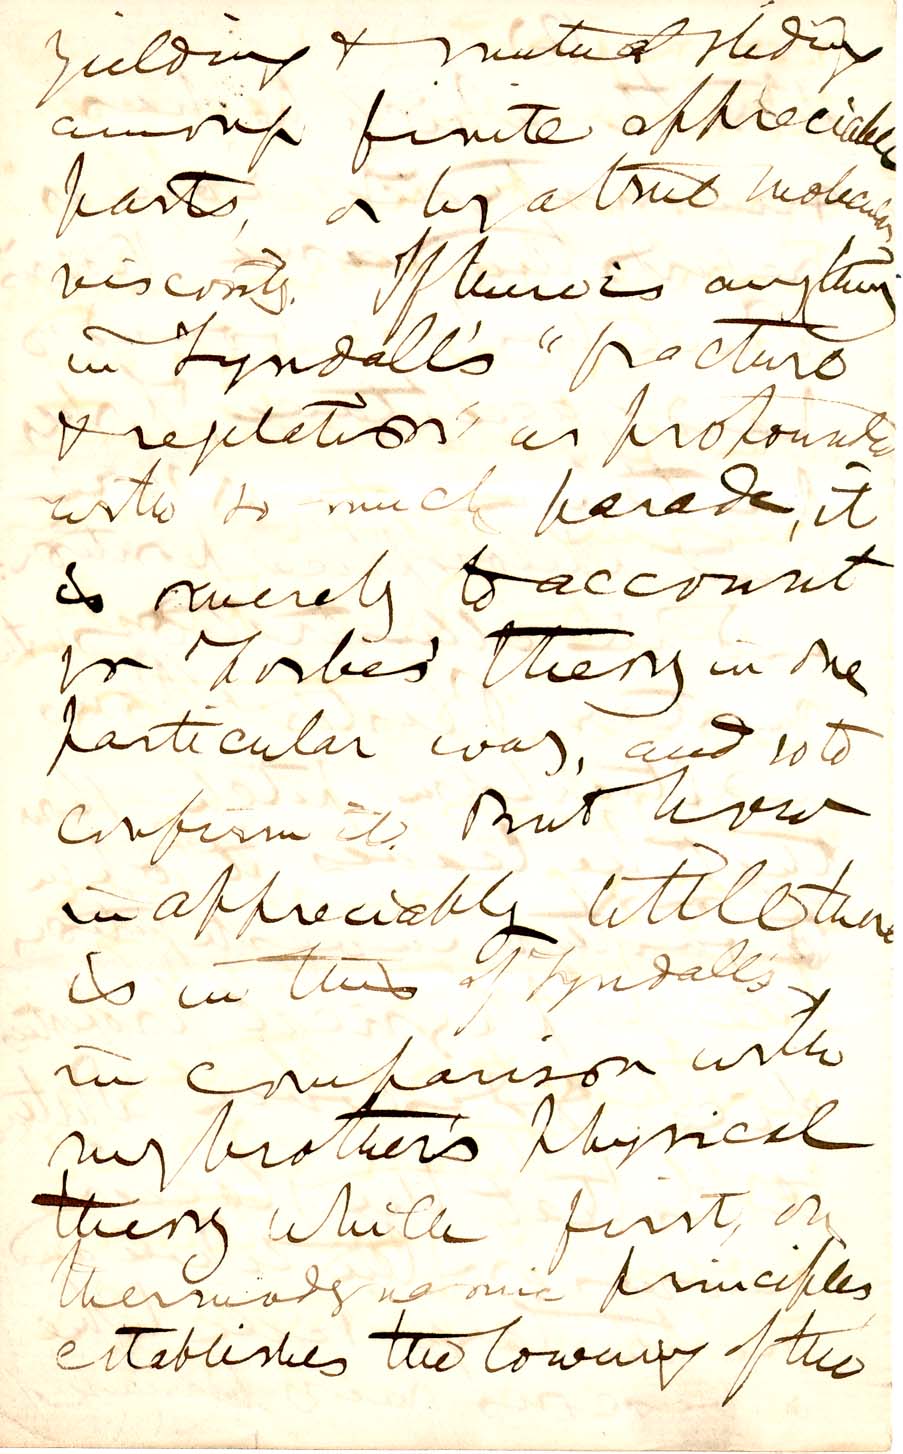 yielding & mutual sliding
among finite appreciable
parts, or by a true molecular
viscosity. If there is anything
in Tyndall's "fracture
& regelation" as propounded
with so much parade, it
is merely to account
for Forbes' theory in one
particular way, and so to
confirm it. But how
inappreciably little there
is in this of Tyndall's,
in comparison with
my brother's physical
theory which first, on
thermodynamic principles
establishes the lowering of the